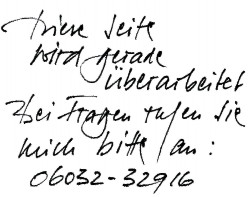 Diese Seite
wird gerade
überarbeitet
Bei Fragen rufen Sie
mich bitte an:
06032-32916